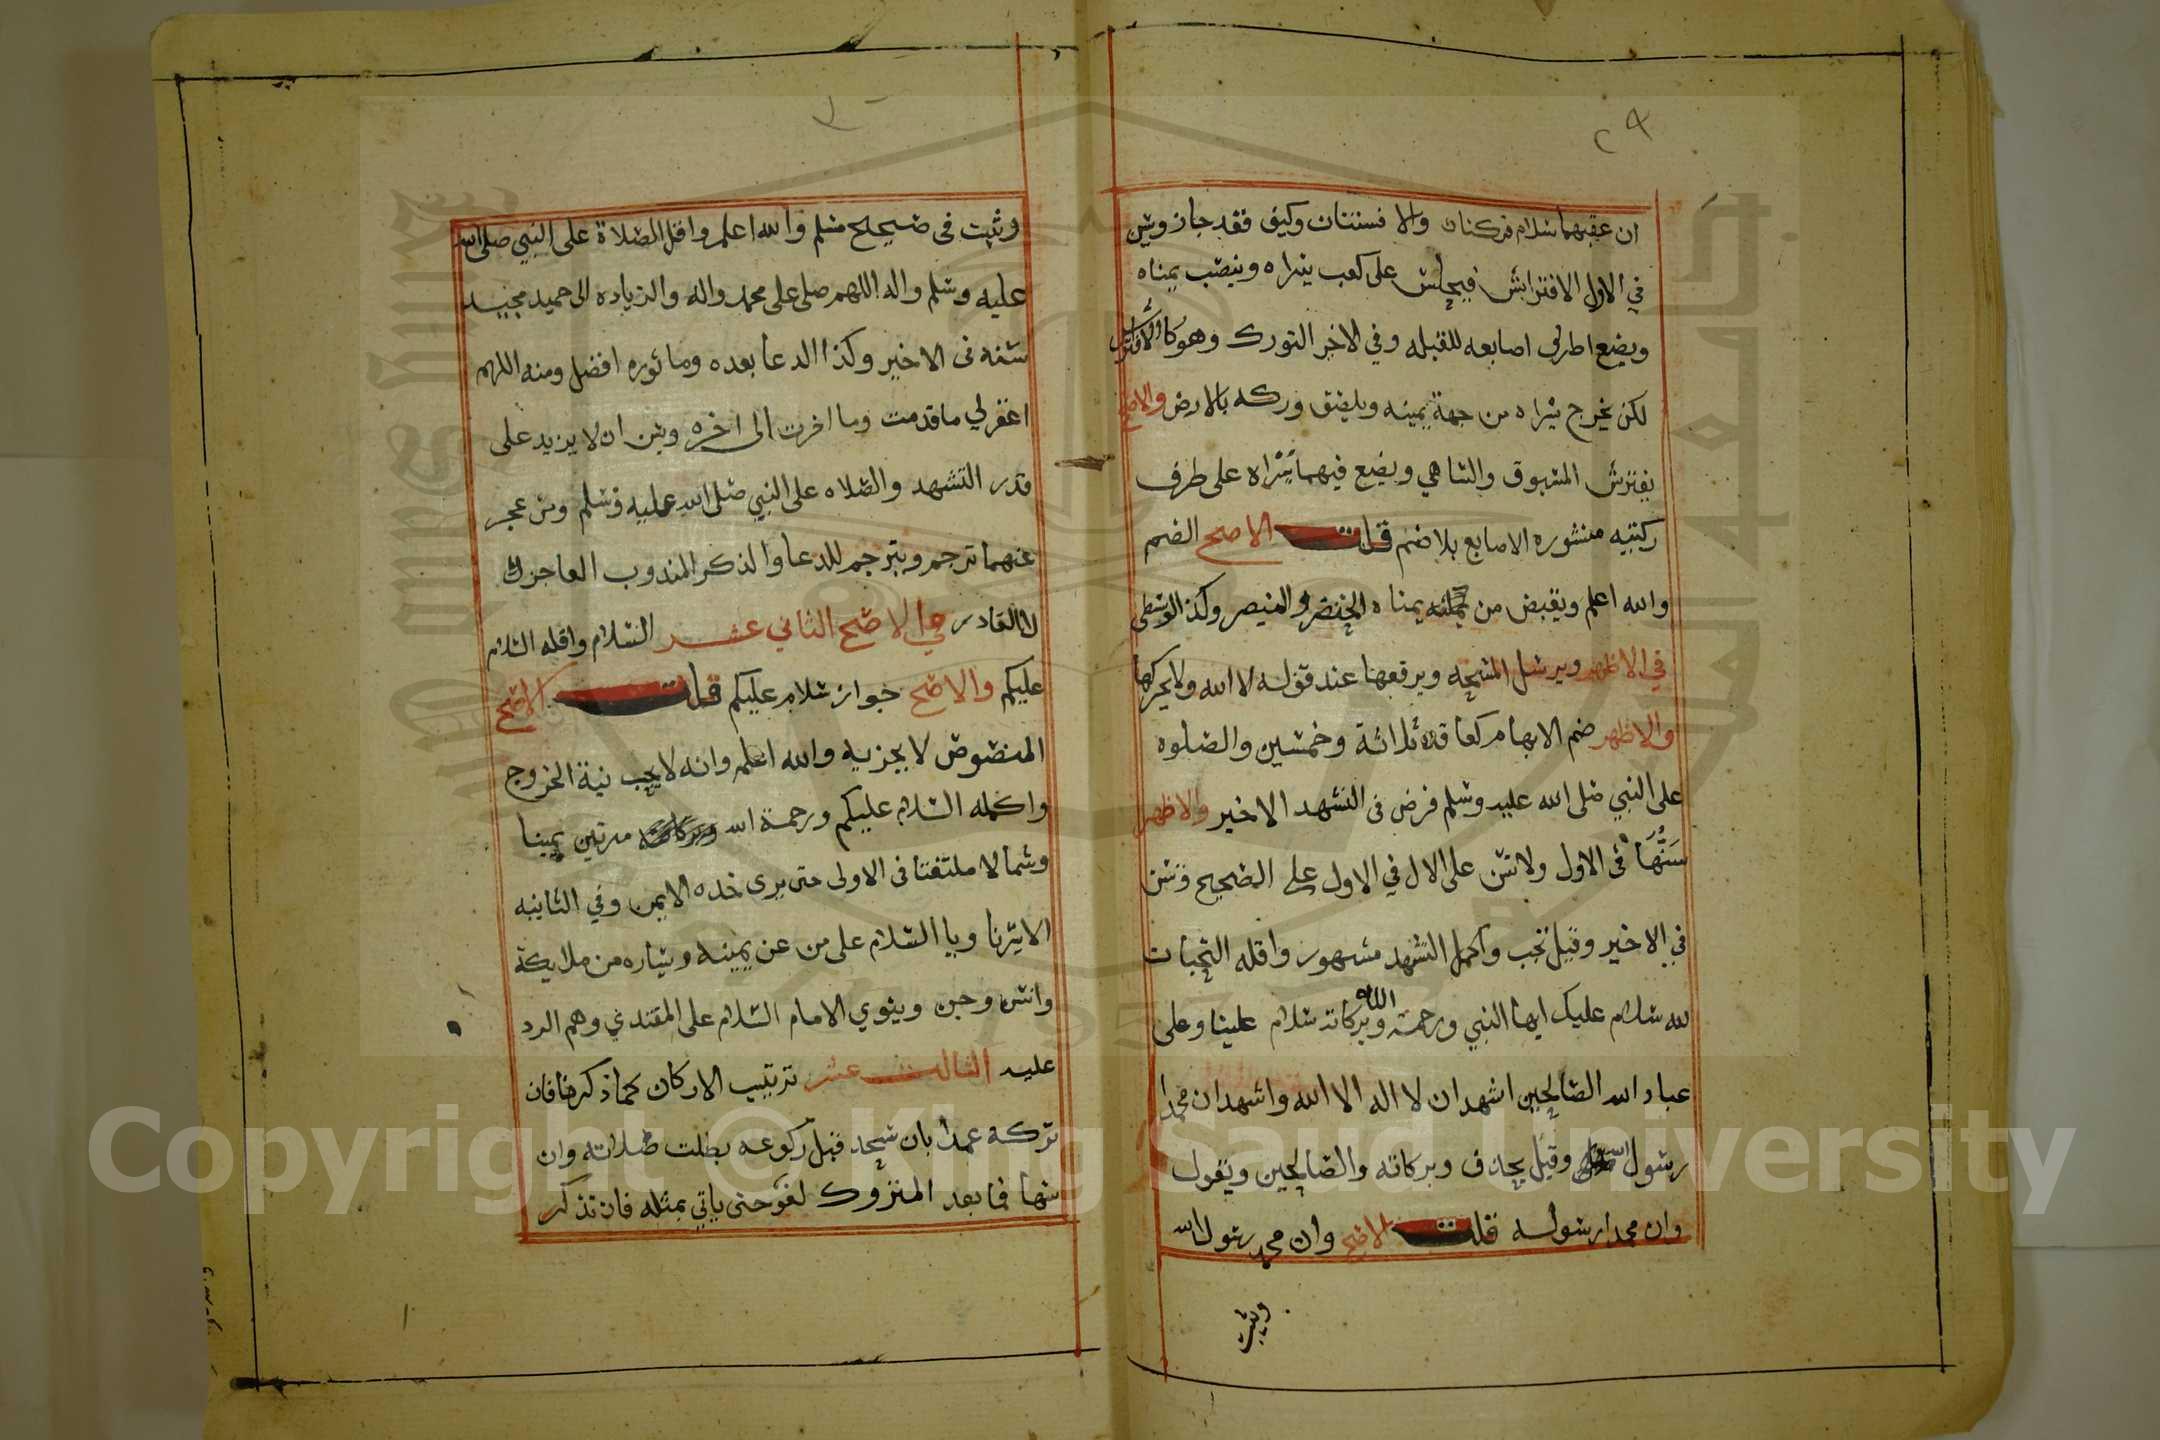 ٢٩
ان عقبهما سلام فركنان والا فسنتان وكيف فقد جاز ويسن
في الاول الافتراش فيجلس على كعب يسراه وينصب يمناه
ويضع اطراف اصابعه للقبله وفي الاخر التورك وهو كالافتراش
لكن يخرج يسراه من جهة يمينه ويلصق وركه بالارض والاصح
يفترش المسبوق والساهي ويضع فيهما يسراه على طرف
ركبتيه منشوره الاصابع بلا ضم قلت الاصح الضم
والله اعلم ويقبض من يمناه الخنصر والبنصر وكذا الوسطى
في الاظهر ويرسل المسبحه ويرفعها عند قوله لا الله ولا يحركها
والاظهر ضم الابهام كعاقد ثلاثة وخمسين والصلوه
على النبي صلى الله عليه وسلم فرض في التشهد الاخير والاظهر
سنها في الاول ولا تسن على الال في الاول على الصحيح وتسن
في الاخير وقيل تجب واكمل التشهد مشهور واقله التحيات
لله سلام عليك ايها النبي ورحمة الله وبركاته سلام علينا وعلى
عباد الله الصالحين اشهد ان لا اله الا الله واشهد ان محمدا
رسول الله وقيل يحذف وبركاته والصالحين ويقول
وان محمدا رسوله قلت الاصح وان محمد رسول الله
وثبت
٣٠
وثبت في صحيح مسلم والله اعلم واقل الصلاة على النبي صلى الله
عليه وسلم واله اللهم صلى على محمد واله والزياده الى حميد مجيد
سنه في الاخير وكذا الدعا بعده وماثوره افضل ومنه اللهم
اغفر لي ما قدمت وما اخرت الى اخره ويسن ان لا يزيد على
قدر التشهد والصلاه على النبي صلى الله عليه وسلم ومن عجز
عنهما ترجم ويترجم للدعا والذكر المندوب العاجز
لا القادر في الاصح الثاني عشر السلام واقله السلام
عليكم والاصح جواز سلام عليكم قلت الاصح
المنصوص لا يجزيه والله اعلم وانه لا يجب نية الخروج
واكمله السلام عليكم ورحمة الله مرتين يمينا
وشمالا ملتفتا في الاولى حتى يرى خده الايمن وفي الثانيه
الايسر ناويا السلام على من عن يمينه ويساره من ملايكة
وانس وجن وينوي الامام السلام على المقتدي وهم الرد
عليه الثالث عشر ترتيب الاركان كما ذكرنا فان
تركه عمدا بان سجد قبل ركوعه بطلت صلاته وان
سها فما بعد المتروك لغو حتى ياتي بمثله فان تذكر
Copyright © King Saud University